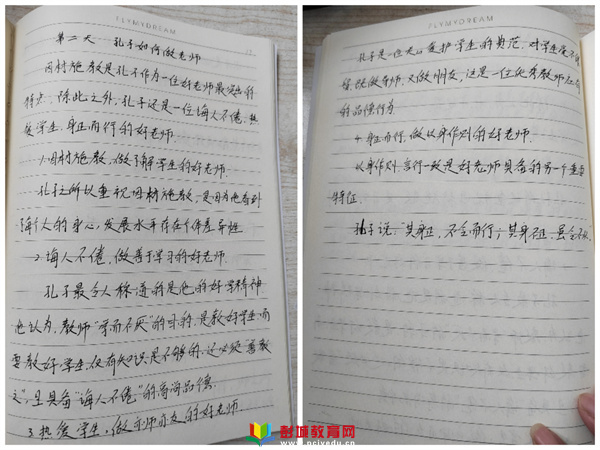 FLYMYDREAM
第二天 孔子如何做老师
因材施教是孔子作为一位好老师最突出的
特点,除此之外,孔子还是一位诲人不倦、热
爱学生、身正而行的好老师.
1.因材施教,做了解学生的好老师.
孔子之所以重视因材施教,是因为他看到
每个人的身心发展水平存在个体差异性
2.诲人不倦,做善于学习的好老师.
孔子最令人称道的是他的好学精神
他认为,教师"学而不厌"的目的,是教好学生,而
要教好学生,仅有知识是不够的,还必须"善教
之",且具备"诲人不倦"的高尚品德.
3.热爱学生,做亦师亦友的好老师.
FLYMYDREAM
孔子是一位关心爱护学生的典范,对学生
既做导师,又做朋友,这是一位优秀教师应有
的品德行为
4.身正而行,做以身作则的好老师.
以身作则,言行一致是好老师具备的另一个重要
特征.
孔子说:"其身正,不令而行;其身不正,虽令不从
彭城教育网
www.pcjyedu.cn